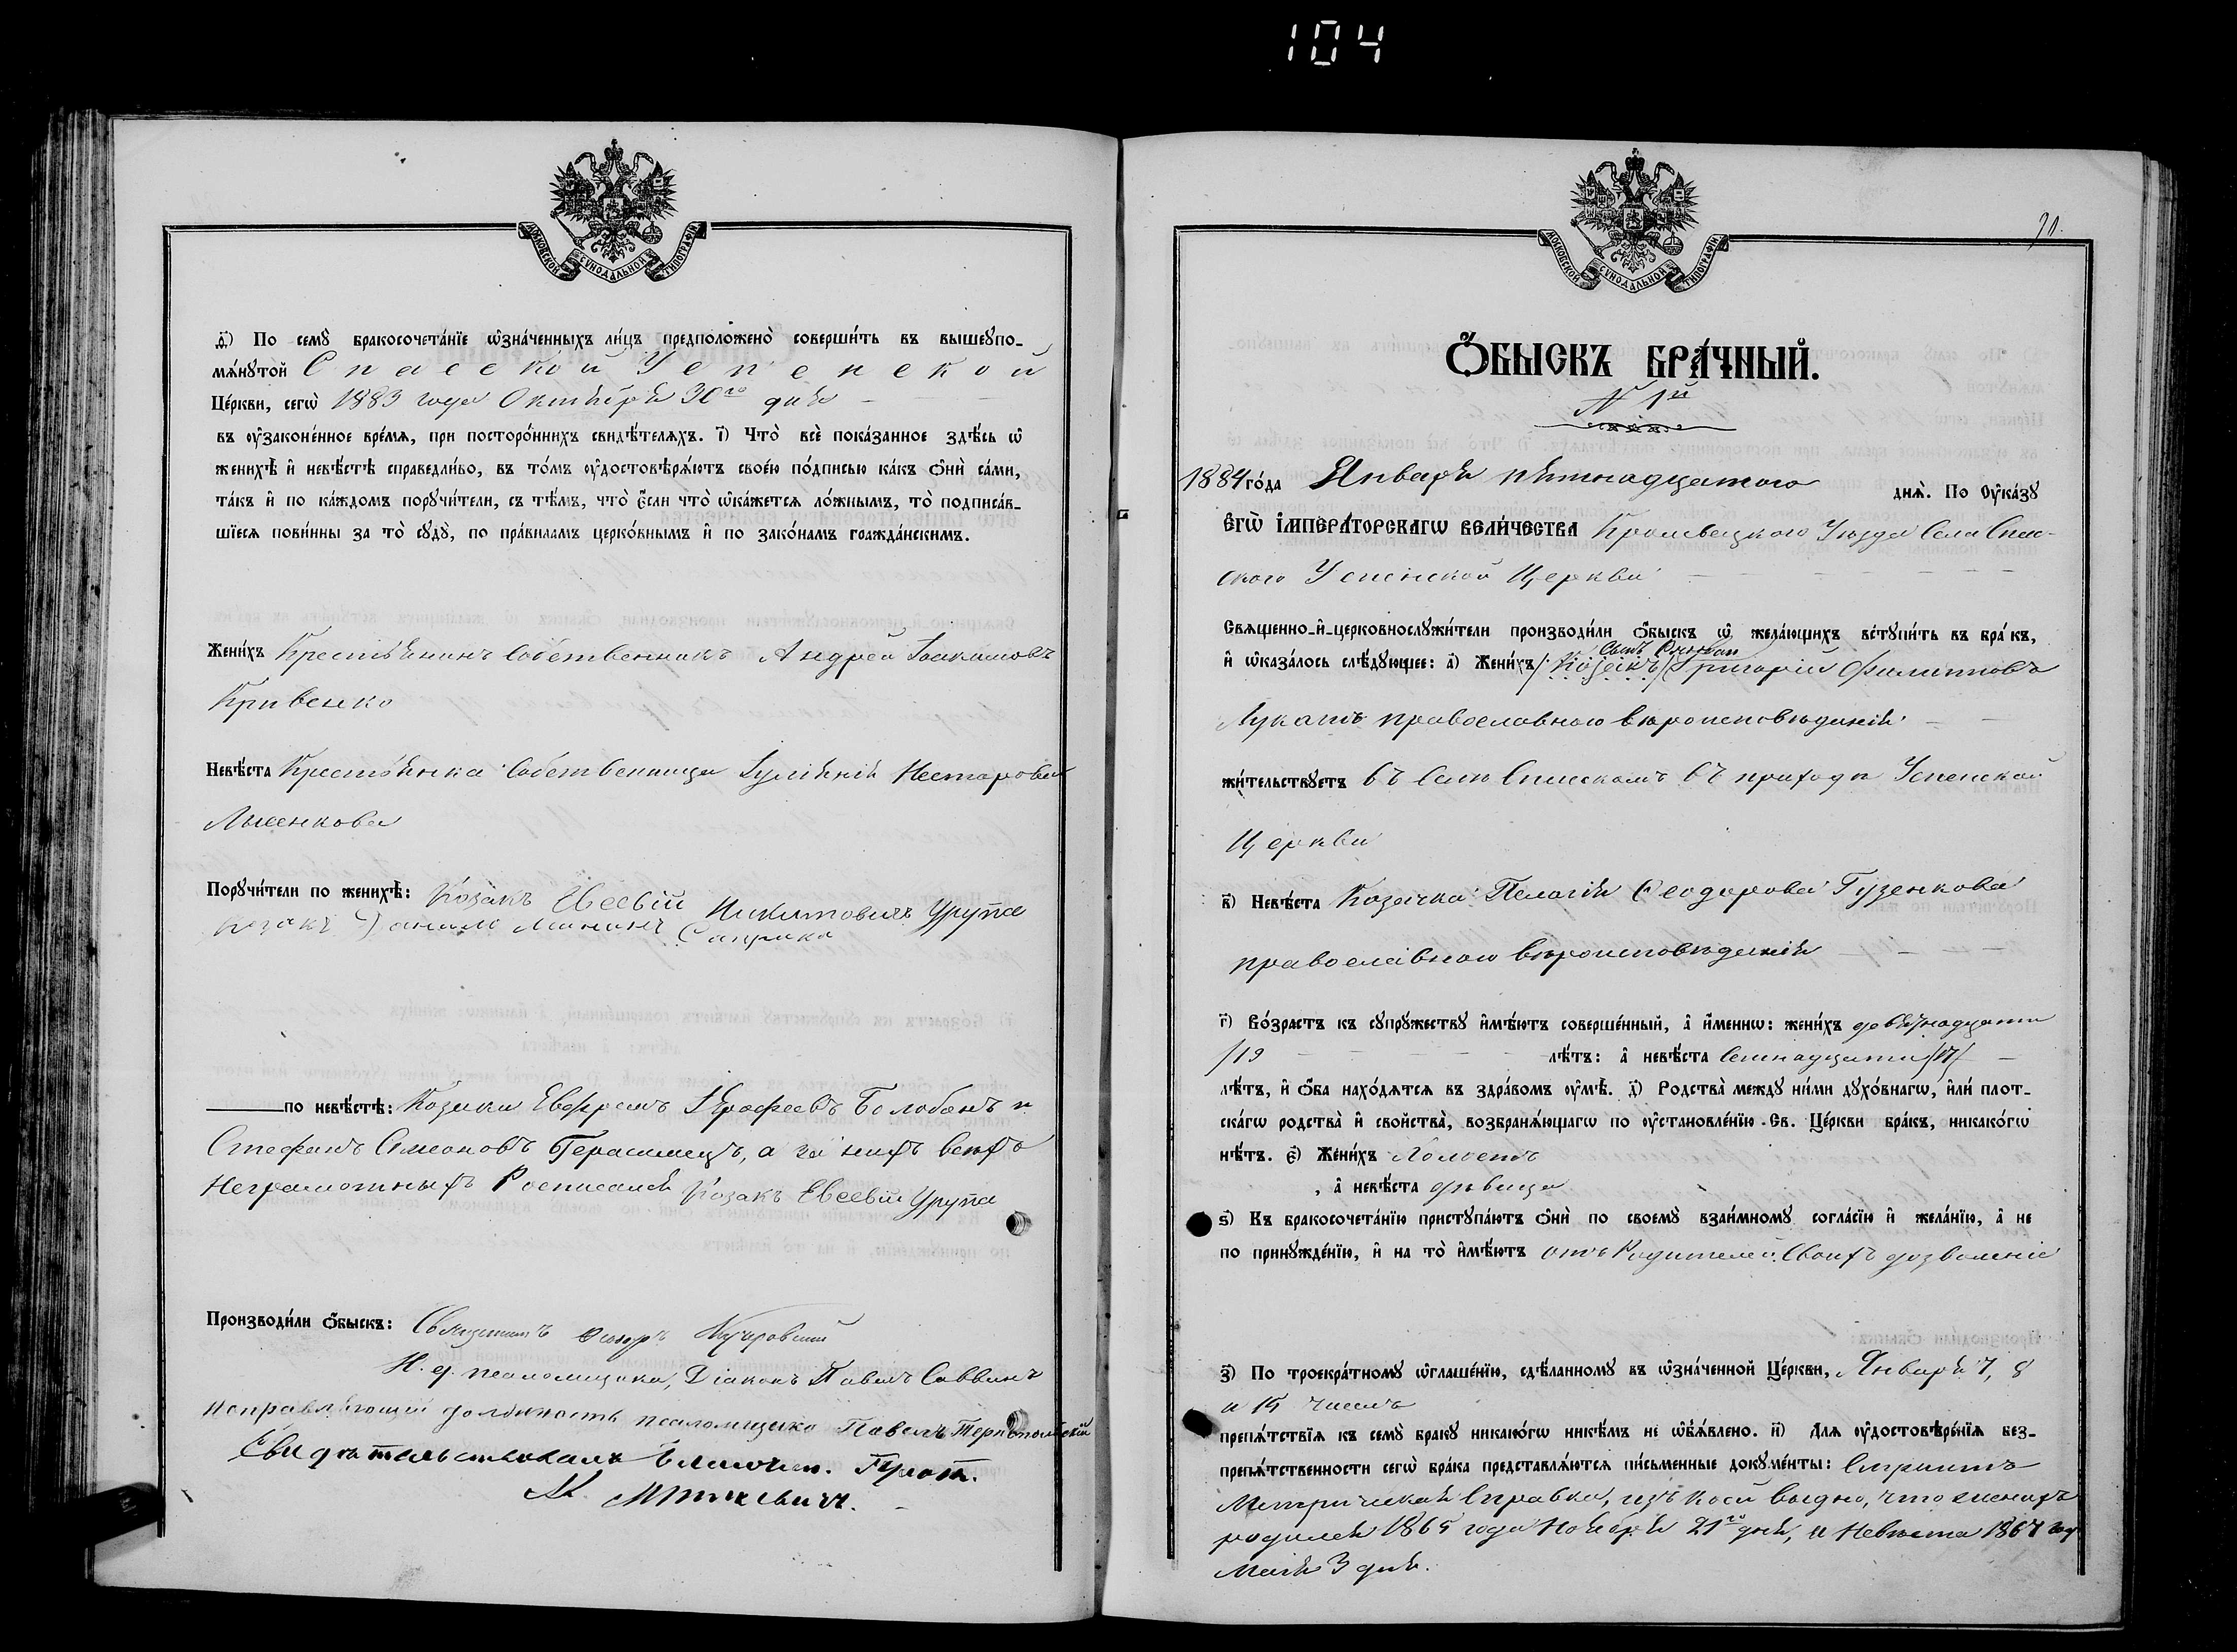 104
МОСКОВСКОЙ СѴНОДАЛЬНОЙ ТИПОГРАФІИ
д҃) По семꙋ̀ бракосочета́нїе ѡ҆зна́ченныхъ ли́цъ предположено̀ соверши́ть въ вышеꙋпо-
мѧ́нꙋтой Спасской Успенской
Це́ркви, сегѡ̀ 1883 года Октября 30го дня
въ ᲂу҆зако́ненное вре́мѧ, при посторо́ннихъ свидѣ́телѧхъ. і҃) Что̀ всѐ пока́занное здѣ́сь ѡ҆
женихѣ̀ и҆ невѣ́стѣ справедли́во, въ то́мъ ᲂу҆достовѣрѧ́ютъ свое́ю по́дписью ка́къ ѻ҆нѝ са́ми,
та́къ и҆ по ка́ждомъ порꙋчи́тели, съ тѣ́мъ, что̀ є҆́сли что̀ ѡ҆ка́жетсѧ ло́жнымъ, то̀ подписа́в-
шїесѧ пови́нны за то̀ сꙋдꙋ̀, по пра́виламъ церко́внымъ и҆ по зако́намъ гражда́нскимъ.
Жени́хъ Крестьянинъ Собственникъ Андрей Іоакимовъ
Кривенко
Невѣ́ста Крестьянка Собственница Іуліянія Несторова
Лысенкова
Порꙋчи́тели по женихѣ̀: Козакъ Евсевій Никитовичъ Урупа
Козакъ Данило Саприка
по невѣ́стѣ: Козаки Ефремъ Іерофеевъ Болобанъ и
Стефанъ Симеоновъ Герасимецъ, а за нихъ всѣхъ
Неграмотныхъ Росписался Козакъ Евсевій Урупа
Производи́ли ѻ҆́быскъ: Священникъ
И. д. псаломщика, Діаконъ Павелъ Саввинъ
Исправляющій должность псаломщика Павелъ Тернопольскій
Свидѣтельствовалъ Благочин. Прот.
МОСКОВСКОЙ СѴНОДАЛЬНОЙ ТИПОГРАФІИ
ѺБЫСКЪ БРАЧНЫЙ.
№ 1й
1884 го́да Января пятнадцатого днѧ̀. По Оу҆ка́зꙋ
Є҆гѡ̀ І҆мпера́торскагѡ вели́чества Кролевецкого Уѣзда Села Спас-
ского Успенской Церкви
Свѧще́нно-и҆-церковнослꙋжи́тели производи́ли ѻ҆́быскъ ѡ҆ жела́ющихъ встꙋпи́ть въ бра́къ,
и҆ ѡ҆каза́лось слѣ́дꙋющее: а҃) Жени́хъ /Козакъ/ Григорій Филиповъ
Лукашъ православного вѣроисповѣданія
жи́тельствꙋетъ въ Селѣ Спаскомъ въ приходѣ Успенской
Церкви
в҃) Невѣ́ста Козачка Пелагія Ѳеодорова Гузенкова
православного вѣроисповѣданія
г҃) Во́зрастъ къ сꙋпрꙋ́жествꙋ и҆мѣ́ютъ соверше́нный, а҆ и҆́менно: жени́хъ девятнадцати
/19 лѣ́тъ: а҆ невѣ́ста Семнадцати /17/
лѣ́тъ, и҆ ѻ҆́ба нахо́дѧтсѧ въ здра́вомъ ᲂу҆мѣ̀. д҃) Родства̀ междꙋ ни́ми дꙋхо́внагѡ, и҆лѝ плот-
ска́гѡ родства̀ и҆ свойства̀, возбранѧ́ющагѡ по ᲂу҆становле́нїю Св. Це́ркви бра́къ, никако́гѡ
нѣ́тъ. є҃) Жени́хъ Холостъ
, а҆ невѣ́ста дѣвица
ѕ҃) Къ бракосочета́нїю пристꙋпа́ютъ ѻ҆нѝ по своемꙋ̀ взаи́мномꙋ согла́сїю и҆ жела́нїю, а҆ не
по принꙋжде́нїю, и҆ на то̀ и҆мѣ́ютъ отъ Родителей Своихъ дозволеніе
з҃) По троекра́тномꙋ ѡ҆глаше́нїю, сдѣ́ланномꙋ въ ѡ҆зна́ченной Це́ркви, Января 7, 8
и 15 числъ
препѧ́тствїѧ къ семꙋ̀ бракꙋ никако́гѡ никѣ́мъ не ѡ҆б̾ѧ́влено. и҃) Длѧ ᲂу҆достовѣре́нїѧ без-
препѧ́тственности сегѡ̀ бра́ка представлѧ́ютсѧ пи́сьменные докꙋме́нты:
Метрическая Справка, изъ коей видно, что женихъ
родился 1865 года Ноября 21го дня, а Невѣста 1867 году
Мая 3 дня.